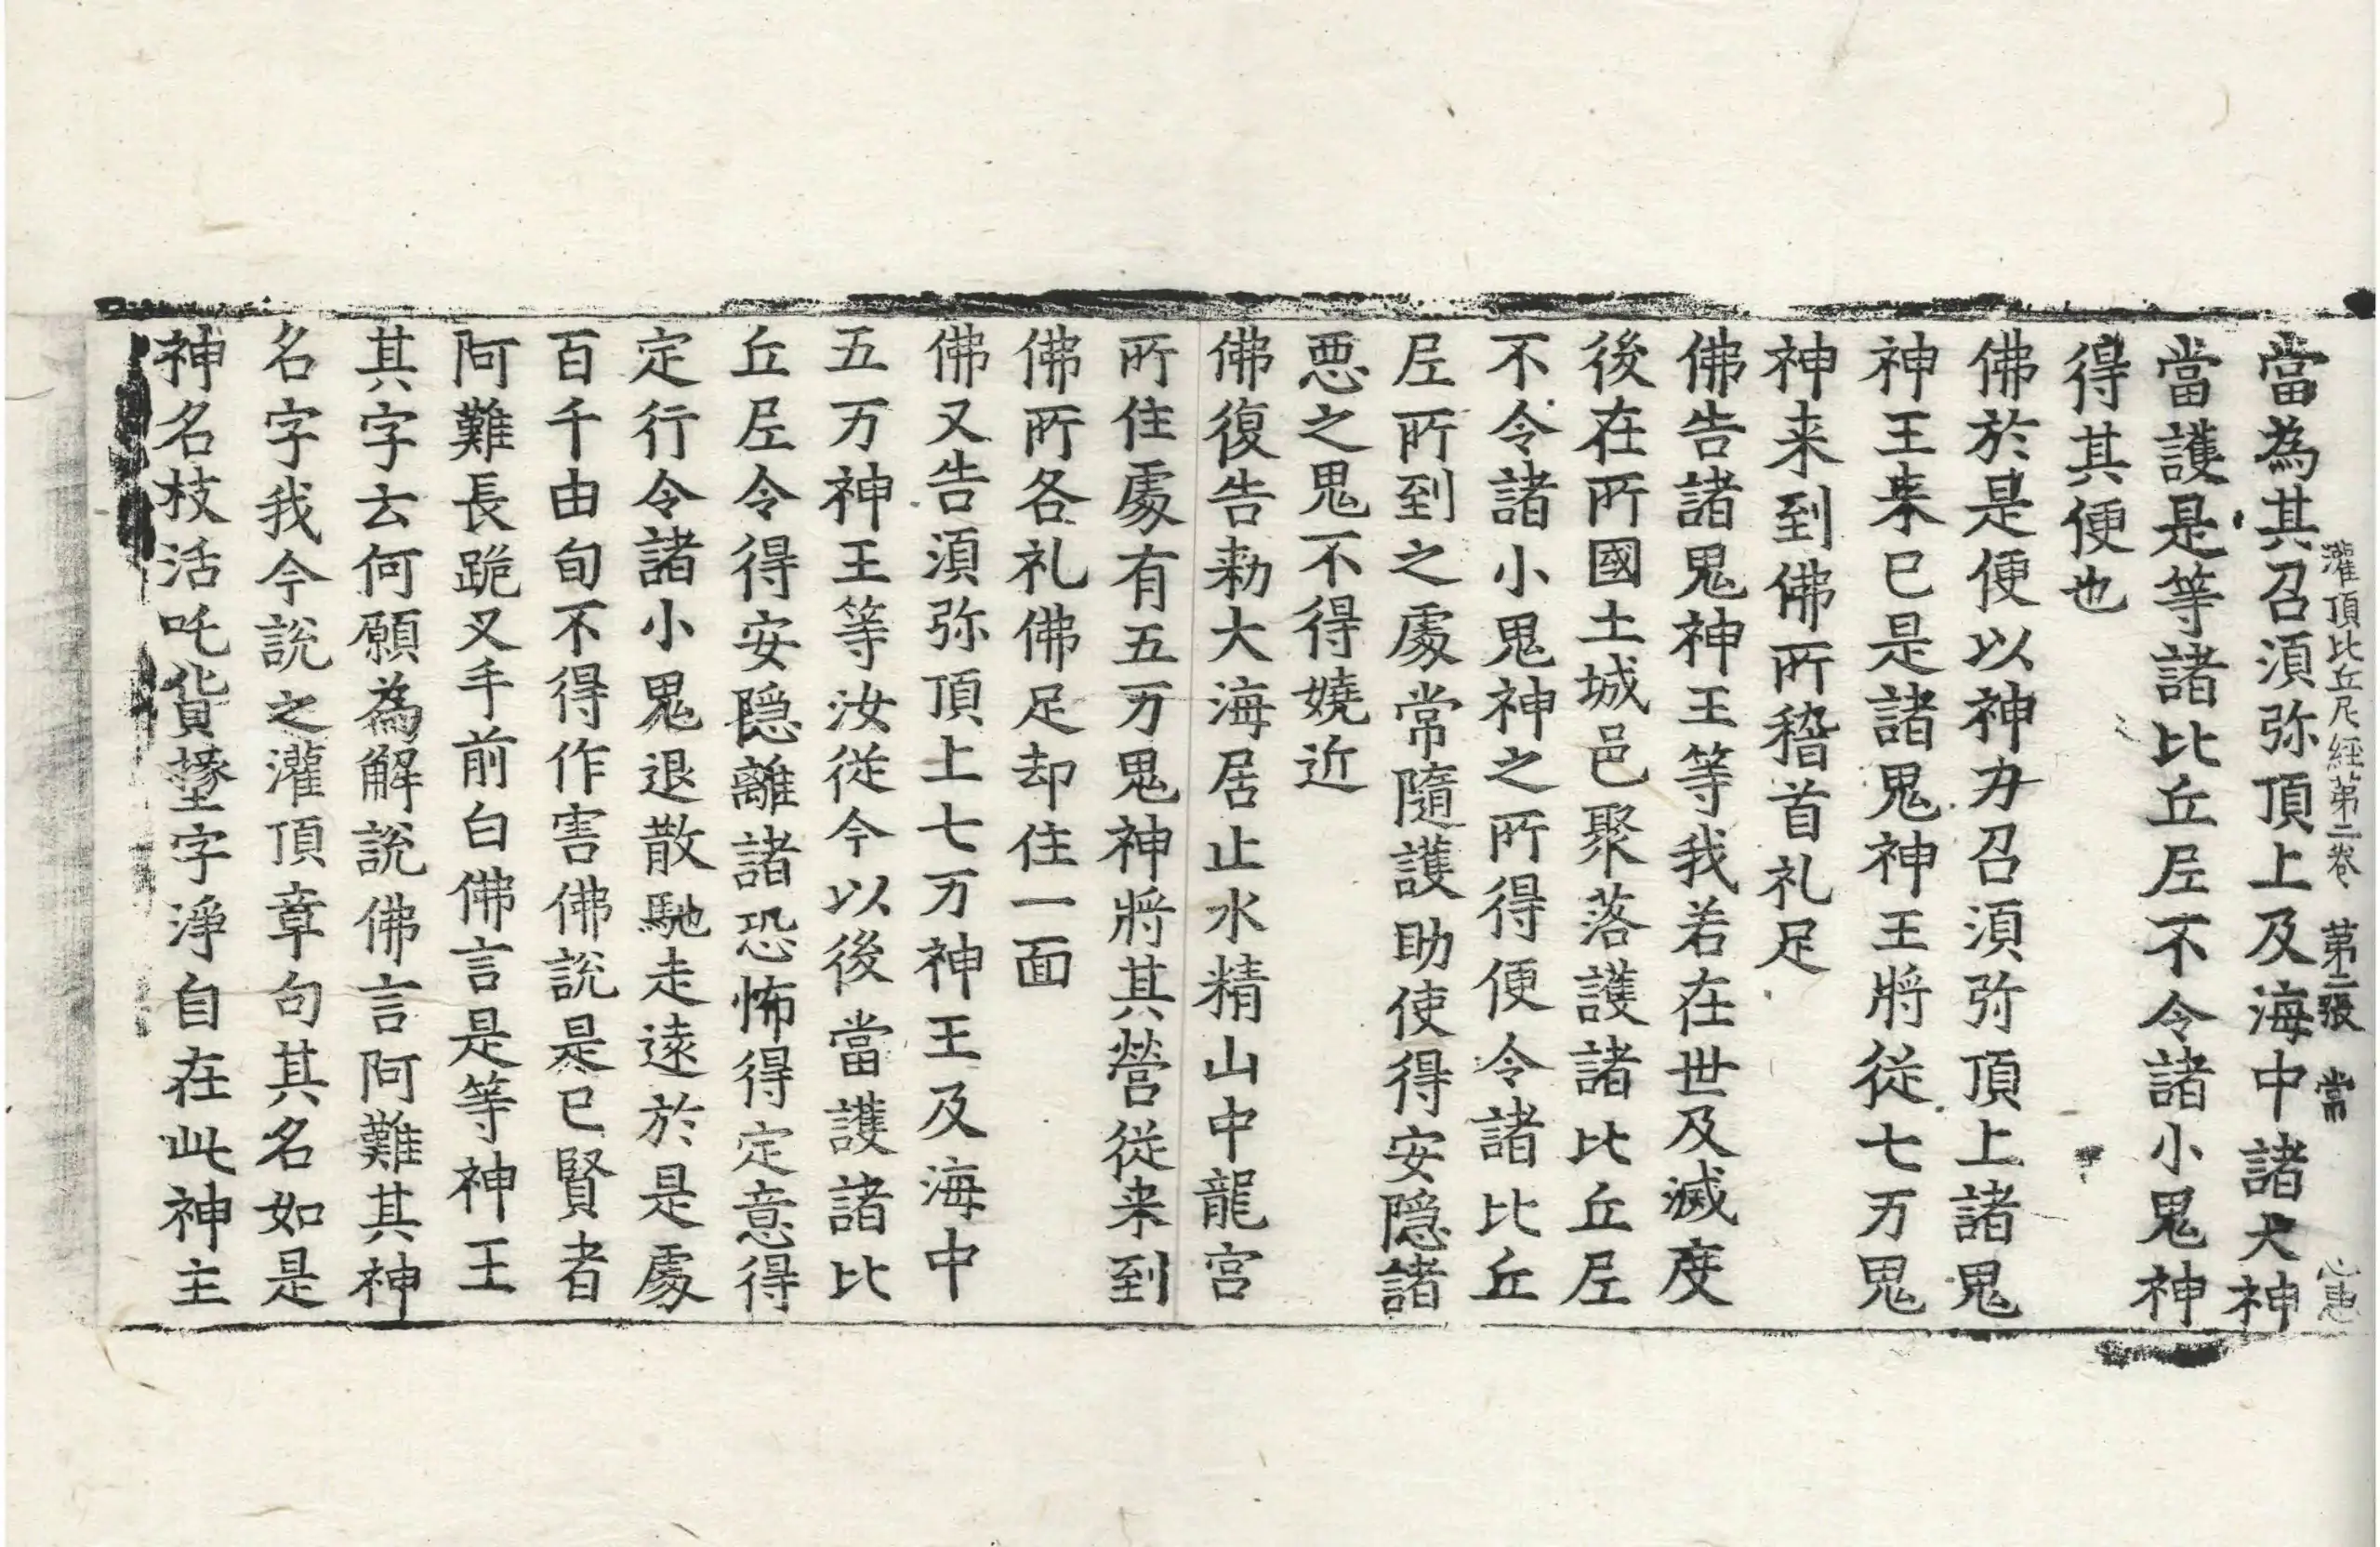 灌頂比丘尼經第二卷 第二張 常
當為其召湏弥頂上及海中諸大神
當護是等諸比丘𡰱不令諸小鬼神
得其便也
佛於是便以神力召湏弥頂上諸鬼
神王来已是諸鬼神王將從七万鬼
神来到佛所稽首礼足
佛告諸鬼神王等我若在世及滅度
後在所國土城邑聚落護諸比丘𡰱
不令諸小鬼神之所得便令諸比丘
𡰱所到之處常隨護助使得安隠諸
悪之鬼不得嬈近
佛復告勑大海居止水精山中龍宫
所住處有五万鬼神將其營從来到
佛所各礼佛足却住一面
佛又告湏弥頂上七万神王及海中
五万神王等汝従今以後當護諸比
丘𡰱令得安隠離諸恐怖得定意得
定行令諸小鬼退散馳走逺於是處
百千由旬不得作害佛説是已賢者
阿難長跪叉手前白佛言是等神王
其字云何願為解説佛言阿難其神
名字我今説之灌頂章句其名如是
神名枝活吒貨㙸字淨自在此神主